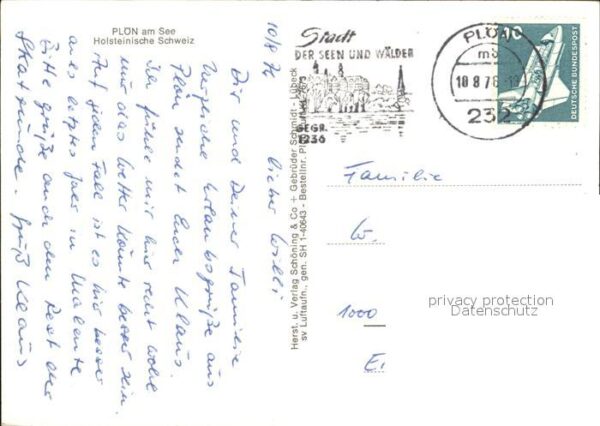 PLÖN am See
Holsteinische Schweiz
10/8 76
Lieber Willi,
Dir und Deiner Familie
herzliche Urlaubsgrüße aus
Plön sendet Euch Klaus.
Ich fühle mir hier recht wohl
nur das Wetter könnte besser sein.
Auf jeden Fall ist es hier besser
als letztes Jahr in Malente
Bitte grüße auch den Rest der
Skatrunde. Gruß Klaus
Herst. u. Verlag Schöning & Co + Gebrüder Schmidt - Lübeck
sv Luftaufn., gen. SH 1-40643 - Bestellnr.
Stadt
DER SEEN UND WÄLDER
GEGR.
1236
PLÖN
mb
10.8.76
232
DEUTSCHE BUNDESPOST
Familie
W.
1000
E.
privacy protection
Datenschutz